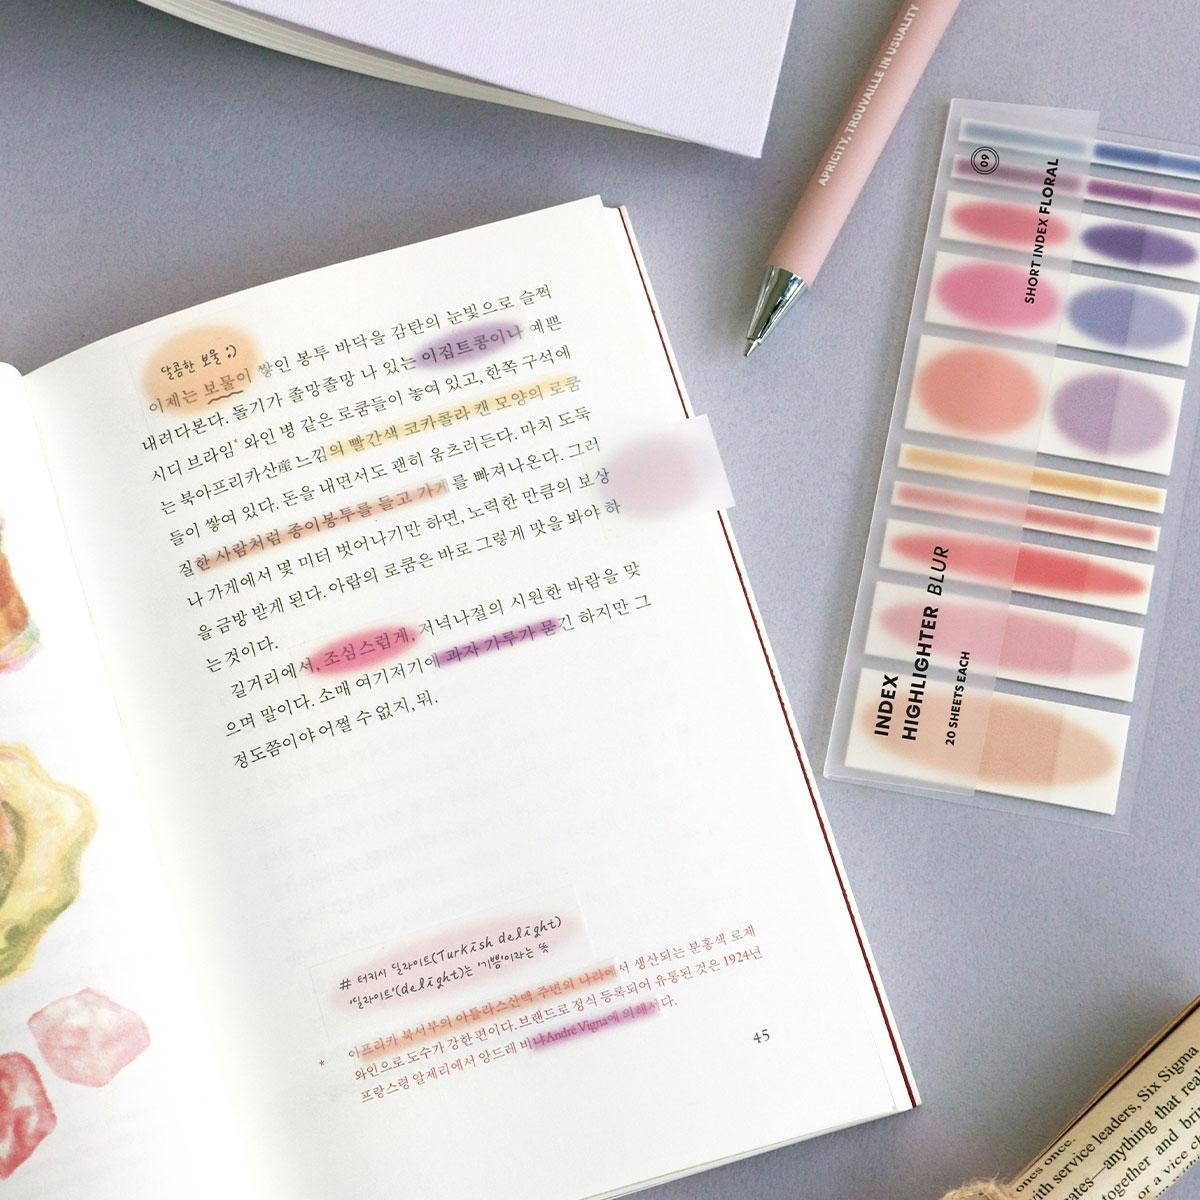 달콤한 보물 ;)
이제는 보물이 쌓인 봉투 바닥을 감탄의 눈빛으로 슬쩍
내려다본다. 돌기가 졸망졸망 나 있는 이집트콩이나 예쁜
시디 브라임* 와인 병 같은 로쿰들이 놓여 있고, 한쪽 구석에
는 북아프리카산産 느낌의 빨간색 코카콜라 캔 모양의 로쿰
들이 쌓여 있다. 돈을 내면서도 괜히 움츠러든다. 마치 도둑
질한 사람처럼 종이봉투를 들고 가게를 빠져나온다. 그러
나 가게에서 몇 미터 벗어나기만 하면, 노력한 만큼의 보상
을 금방 받게 된다. 아랍의 로쿰은 바로 그렇게 맛을 봐야 하
는 것이다.
길거리에서, 조심스럽게, 저녁나절의 시원한 바람을 맞
으며 말이다. 소매 여기저기에 과자 가루가 묻긴 하지만 그
정도쯤이야 어쩔 수 없지, 뭐.
# 터키시 딜라이트(Turkish delight)
'딜라이트'(delight)는 '기쁨'이라는 뜻
* 아프리카 북서부의 아틀라스산맥 주변의 나라에서 생산되는 분홍색 로제
와인으로 도수가 강한 편이다. 브랜드로 정식 등록되어 유통된 것은 1924년
프랑스령 알제리에서 앙드레 비냐André Vigna에 의해서다.
45
APRICITY, TROUVAILLE IN USUALITY
09
SHORT INDEX FLORAL
INDEX
HIGHLIGHTER BLUR
20 SHEETS EACH
ones once.
with service leaders, Six Sigma
ates—anything that real
together and bri
or a vice c